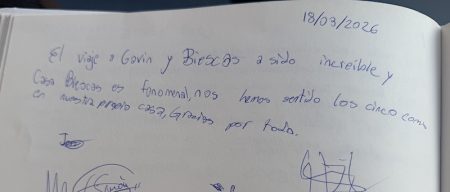 18/03/2026
El viaje a Gavin y Biescas a sido increible y
Casa Biescas es fenomenal, nos hemos sentido los cinco como
en nuestra propia casa, Gracias por todo.